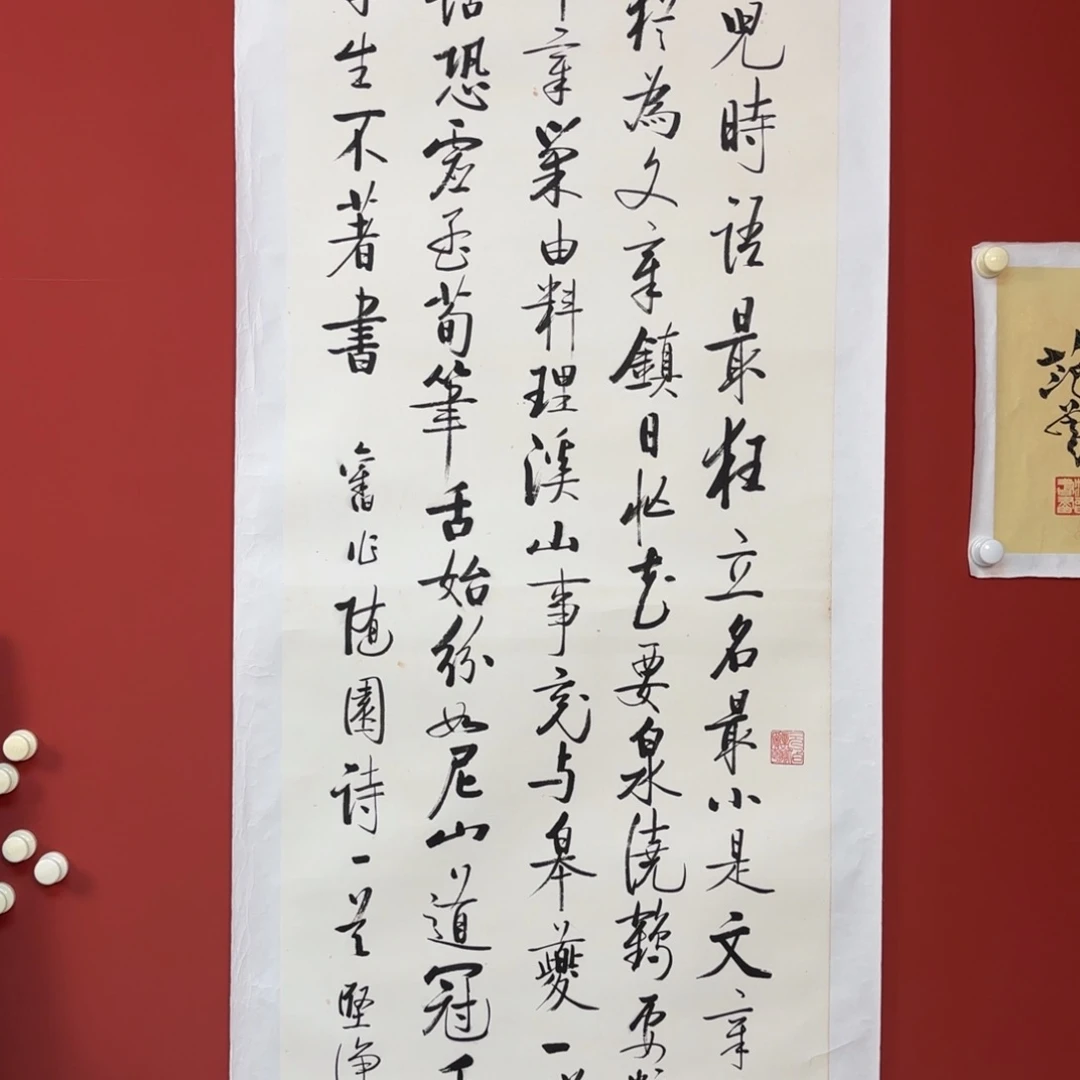 兒時語最狂立名最小是文章
於為文章鎮日忙花要泉澆鶴要
章巢由料理溪山事竟与皋夔一
話恐虛孟荀筆舌始紛如尼山道冠千
生不著書 舊作隨園詩一首 堅淨